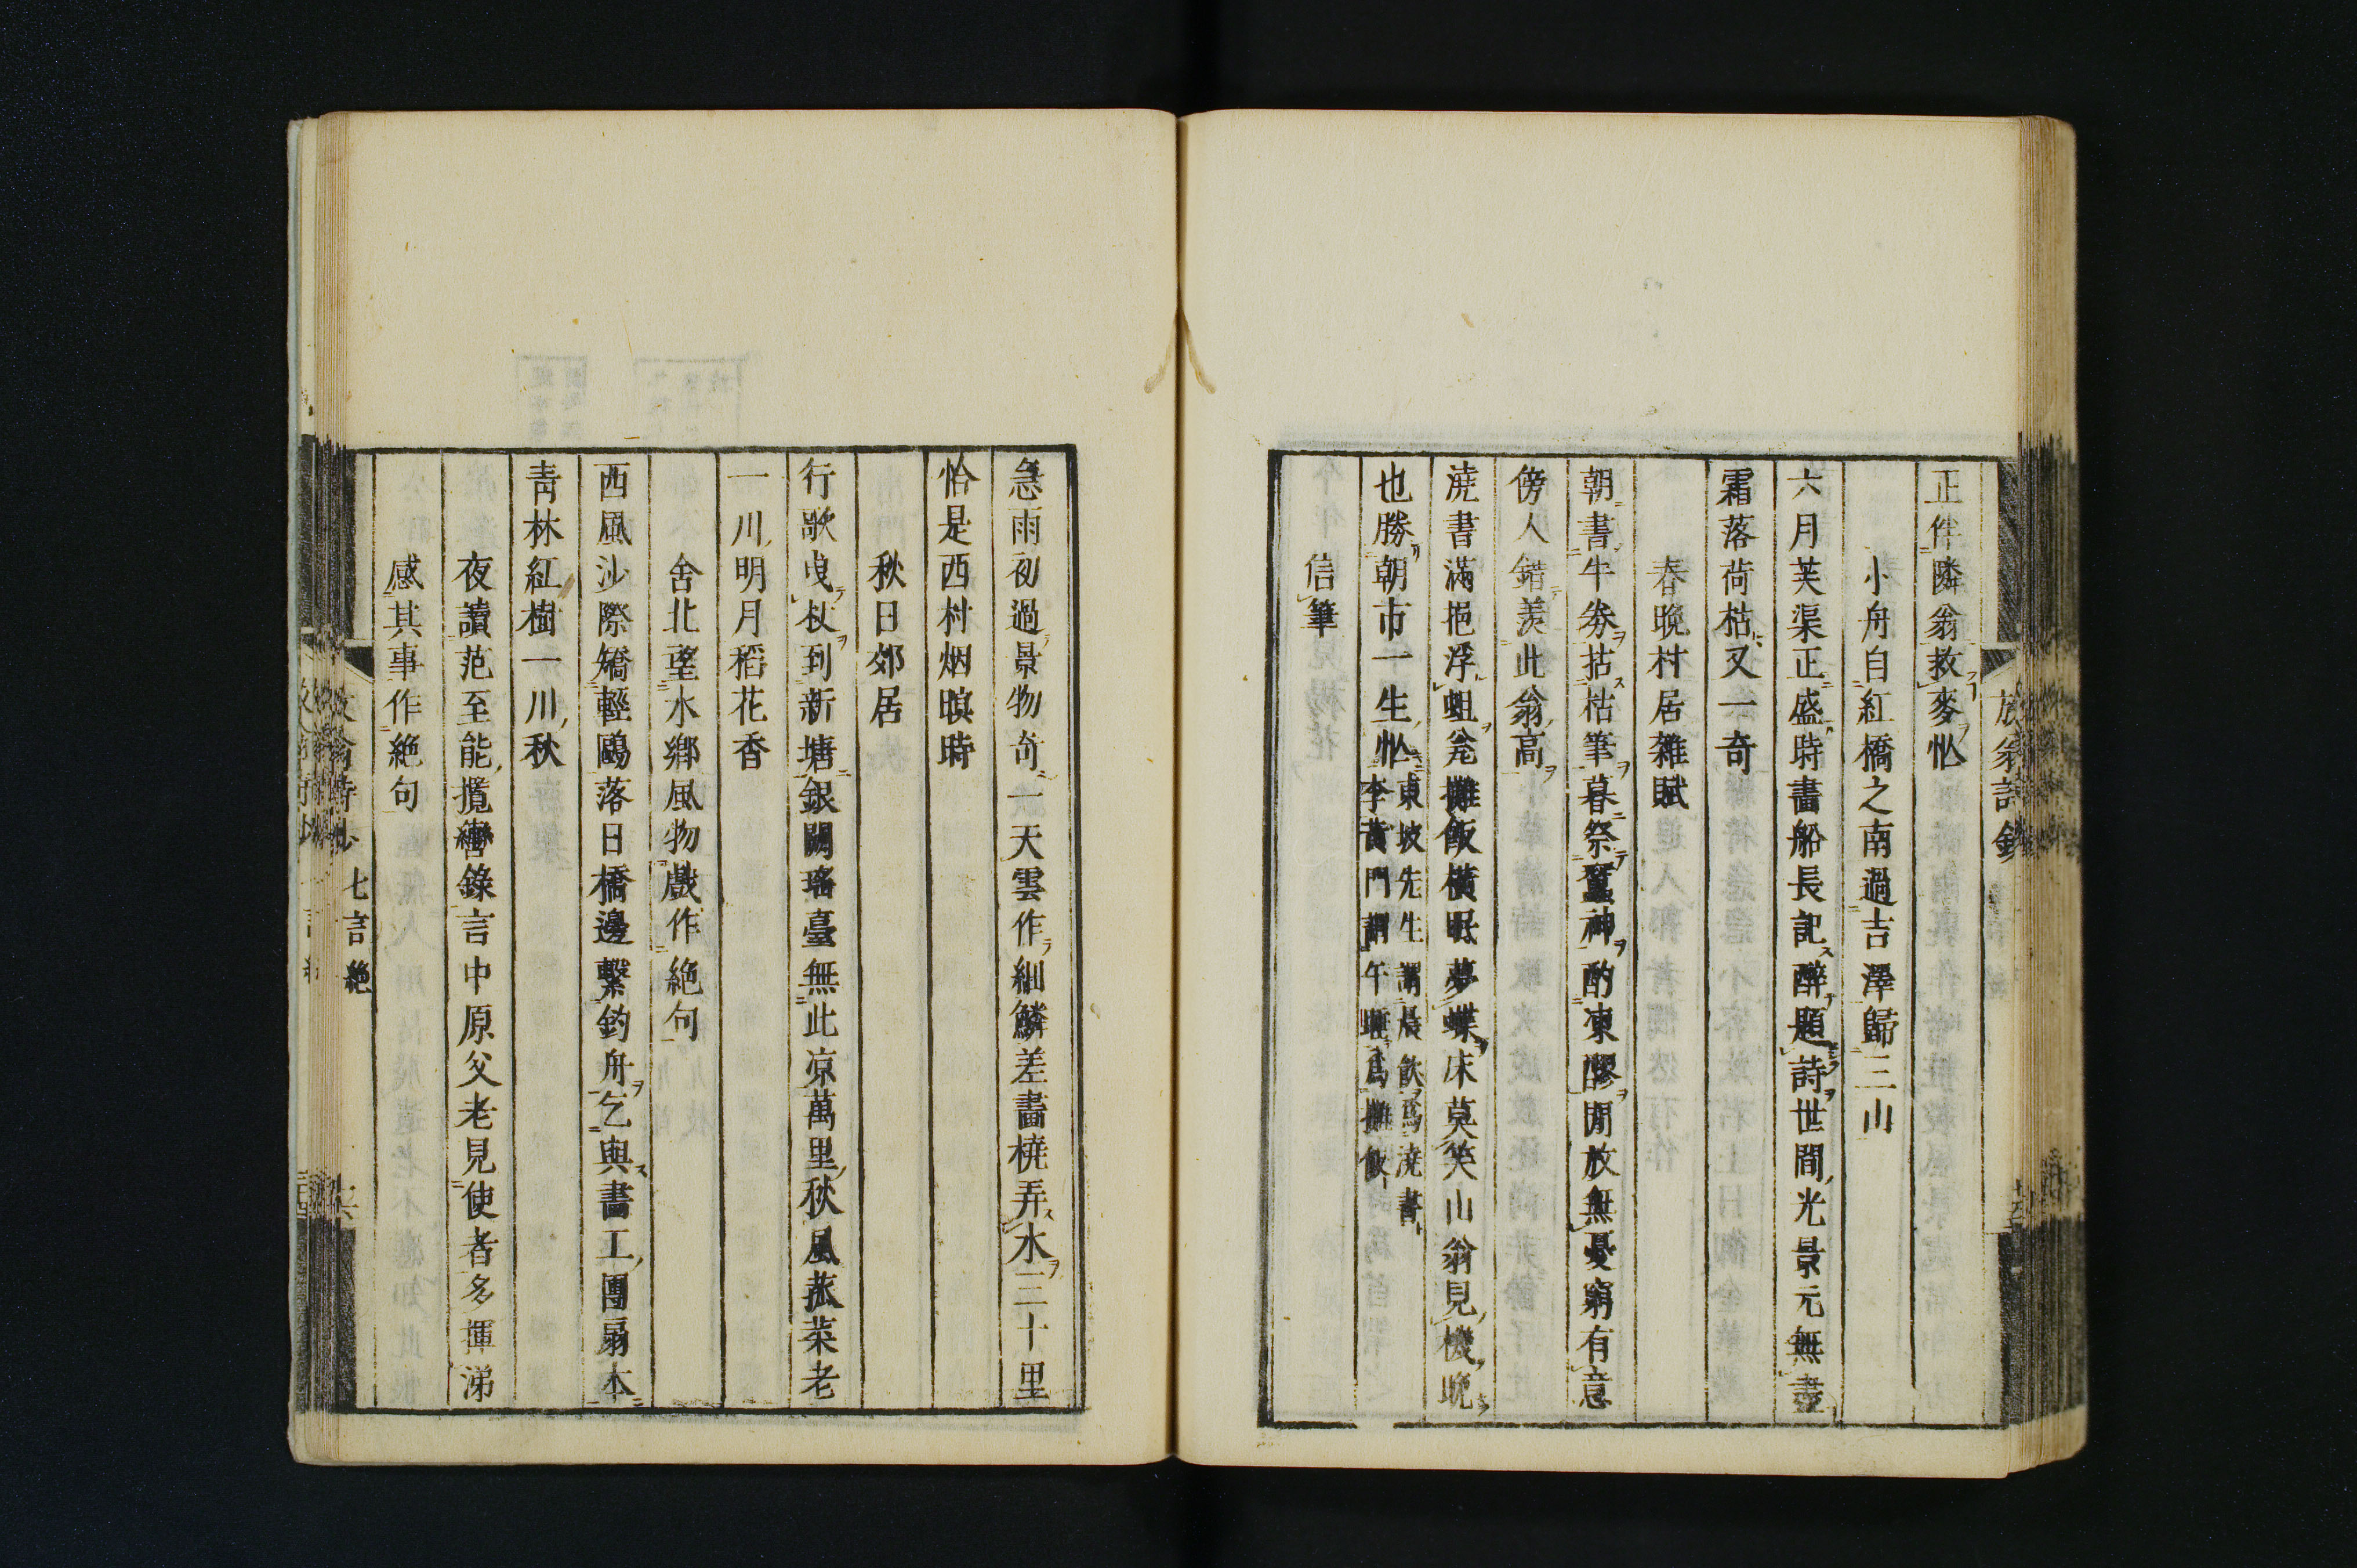 正伴隣翁救麥忙
小舟自紅橋之南過吉澤歸三山
六月芙渠正盛時畫船長記醉題詩世間光景元無盡
霜落荷枯又一奇
春晚村居雜賦
朝書牛券拈枯筆暮祭蠶神酌凍醪閒放無憂窮有意
傍人錯羡此翁高
澆書滿挹浮蛆瓮攤飯橫眠夢蝶床莫笑山翁見機晚
也勝朝市一生忙東坡先生謂晨飲爲澆書
李黄門謂午睡爲攤飯
信筆
急雨初過景物奇一天雲作細鱗差畫橈弄水三十里
恰是西村烟暝時
秋日郊居
行歌曳杖到新塘銀闕瑤臺無此凉萬里秋風菰菜老
一川明月稻花香
舍北望水鄉風物戲作絕句
西風沙際矯輕鷗落日橋邊繫釣舟乞與畫工團扇本
青林紅樹一川秋
夜讀范至能攬轡錄言中原父老見使者多揮涕
感其事作絕句
七言絶